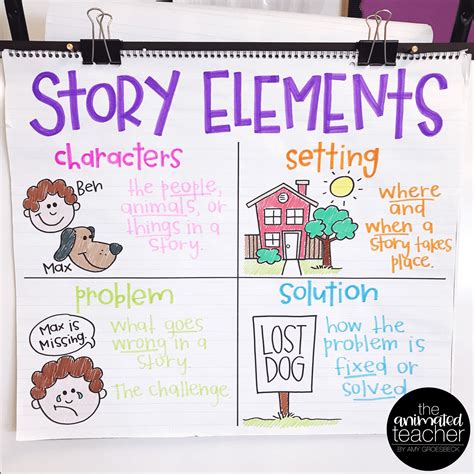 STORY ELEMENTS
characters
Ben
Max
the people,
animals, or
things in a
story.
setting
where
and
when a
story takes
place.
problem
Max is
Missing.
what goes
wrong in a
story.
The challenge
solution
LOST
DOG
how the
problem is
fixed or
solved.
the
animated
teacher
BY AMY GROESBECK